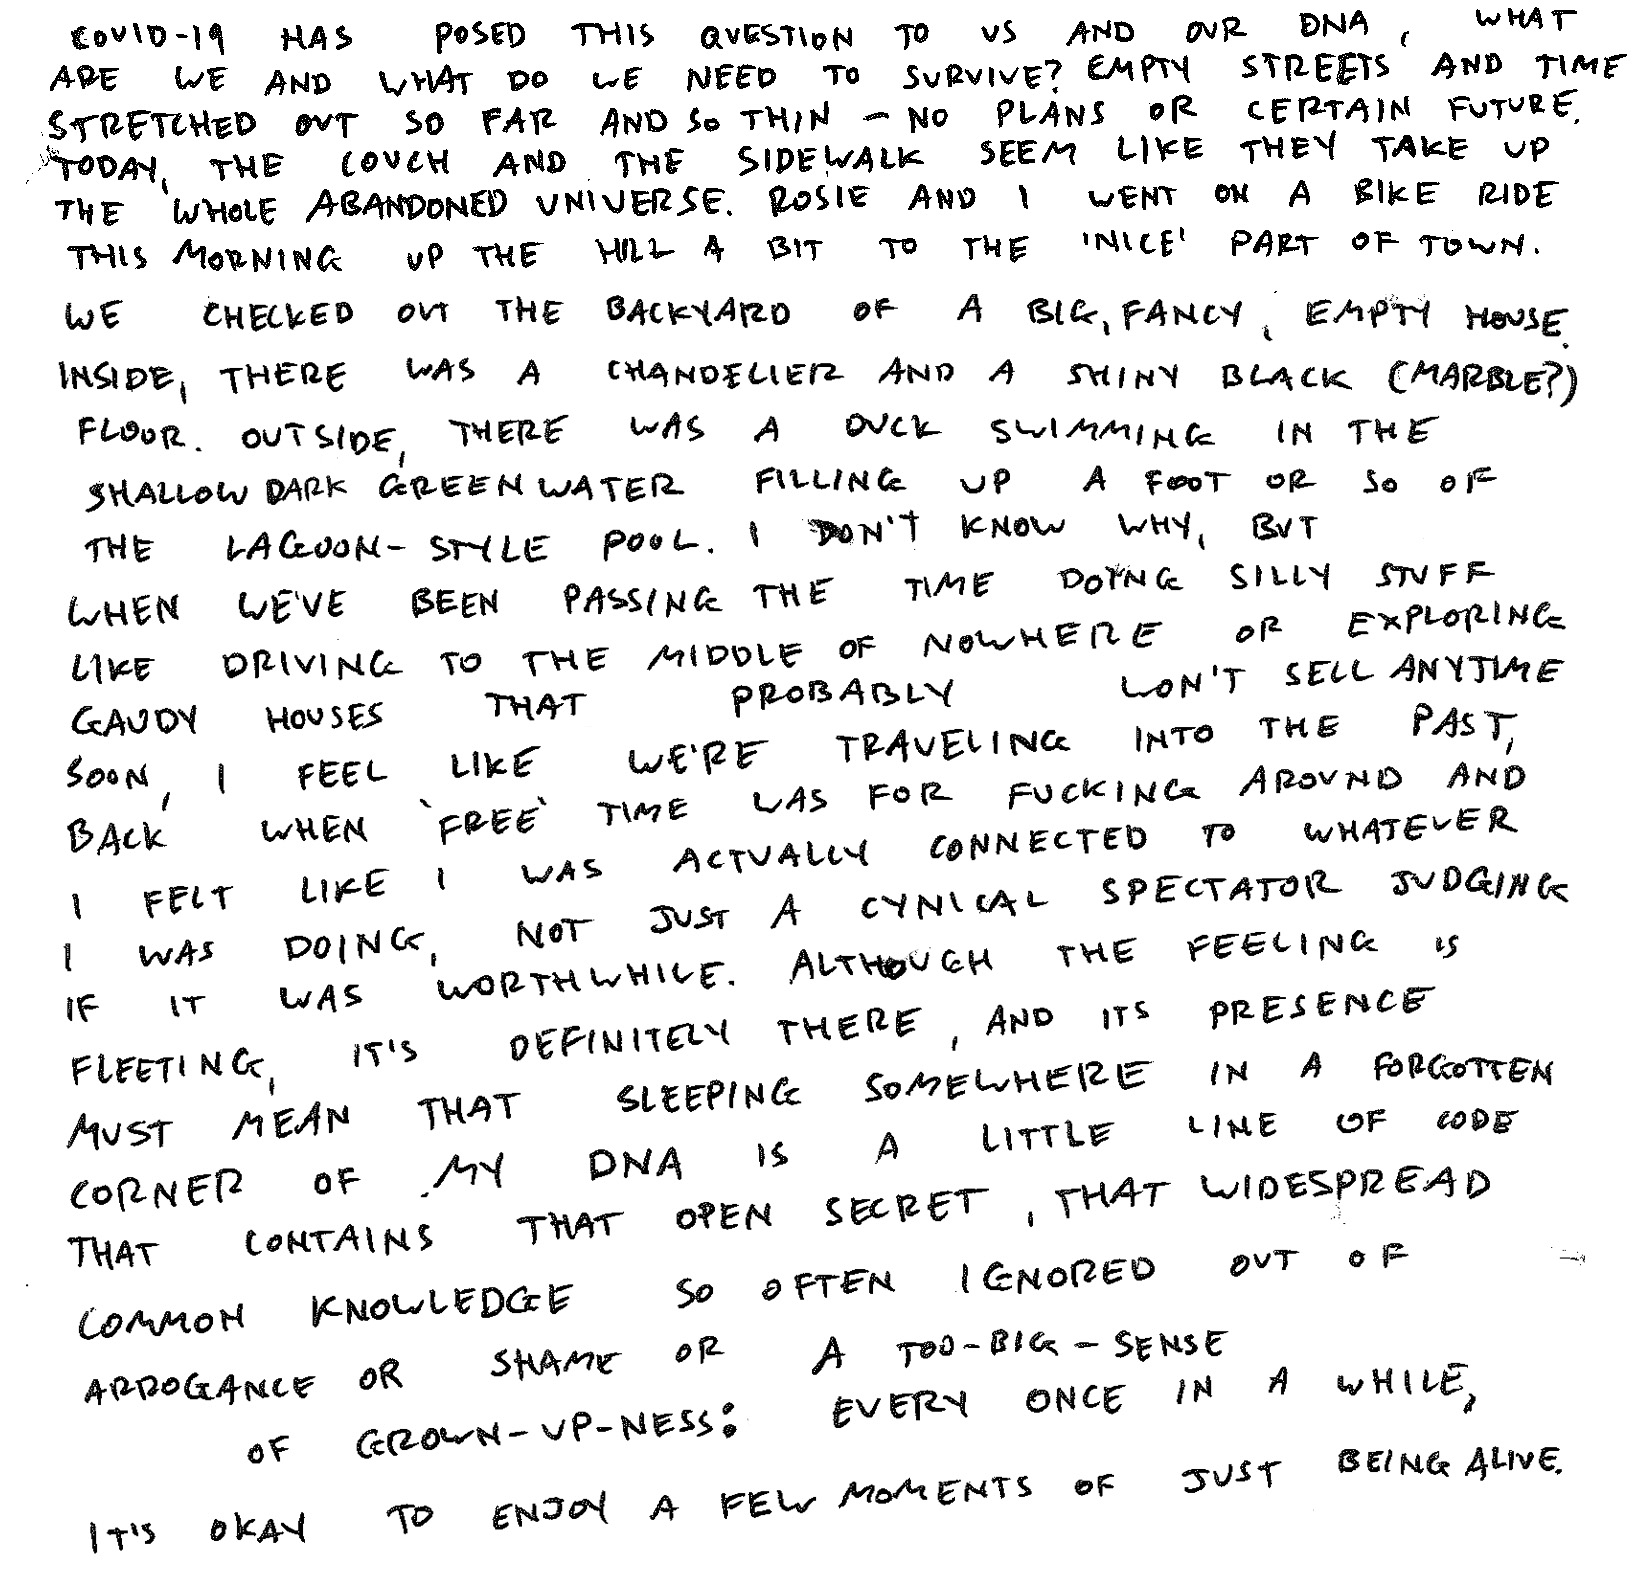 COVID-19 HAS POSED THIS QUESTION TO US AND OUR DNA, WHAT
ARE WE AND WHAT DO WE NEED TO SURVIVE? EMPTY STREETS AND TIME
STRETCHED OUT SO FAR AND SO THIN - NO PLANS OR CERTAIN FUTURE.
TODAY, THE COUCH AND THE SIDEWALK SEEM LIKE THEY TAKE UP
THE WHOLE ABANDONED UNIVERSE. ROSIE AND I WENT ON A BIKE RIDE
THIS MORNING UP THE HILL A BIT TO THE 'NICE' PART OF TOWN.
WE CHECKED OUT THE BACKYARD OF A BIG, FANCY, EMPTY HOUSE.
INSIDE, THERE WAS A CHANDELIER AND A SHINY BLACK (MARBLE?)
FLOOR. OUTSIDE, THERE WAS A DUCK SWIMMING IN THE
SHALLOW DARK GREEN WATER FILLING UP A FOOT OR SO OF
THE LAGOON-STYLE POOL. I DON'T KNOW WHY, BUT
WHEN WE'VE BEEN PASSING THE TIME DOING SILLY STUFF
LIKE DRIVING TO THE MIDDLE OF NOWHERE OR EXPLORING
GAUDY HOUSES THAT PROBABLY WON'T SELL ANYTIME
SOON, I FEEL LIKE WE'RE TRAVELING INTO THE PAST,
BACK WHEN 'FREE' TIME WAS FOR FUCKING AROUND AND
I FELT LIKE I WAS ACTUALLY CONNECTED TO WHATEVER
I WAS DOING, NOT JUST A CYNICAL SPECTATOR JUDGING
IF IT WAS WORTHWHILE. ALTHOUGH THE FEELING IS
FLEETING, IT'S DEFINITELY THERE, AND ITS PRESENCE
MUST MEAN THAT SLEEPING SOMEWHERE IN A FORGOTTEN
CORNER OF MY DNA IS A LITTLE LINE OF CODE
THAT CONTAINS THAT OPEN SECRET, THAT WIDESPREAD
COMMON KNOWLEDGE SO OFTEN IGNORED OUT OF
ARROGANCE OR SHAME OR A TOO-BIG-SENSE
OF GROWN-UP-NESS: EVERY ONCE IN A WHILE,
IT'S OKAY TO ENJOY A FEW MOMENTS OF JUST BEING ALIVE.